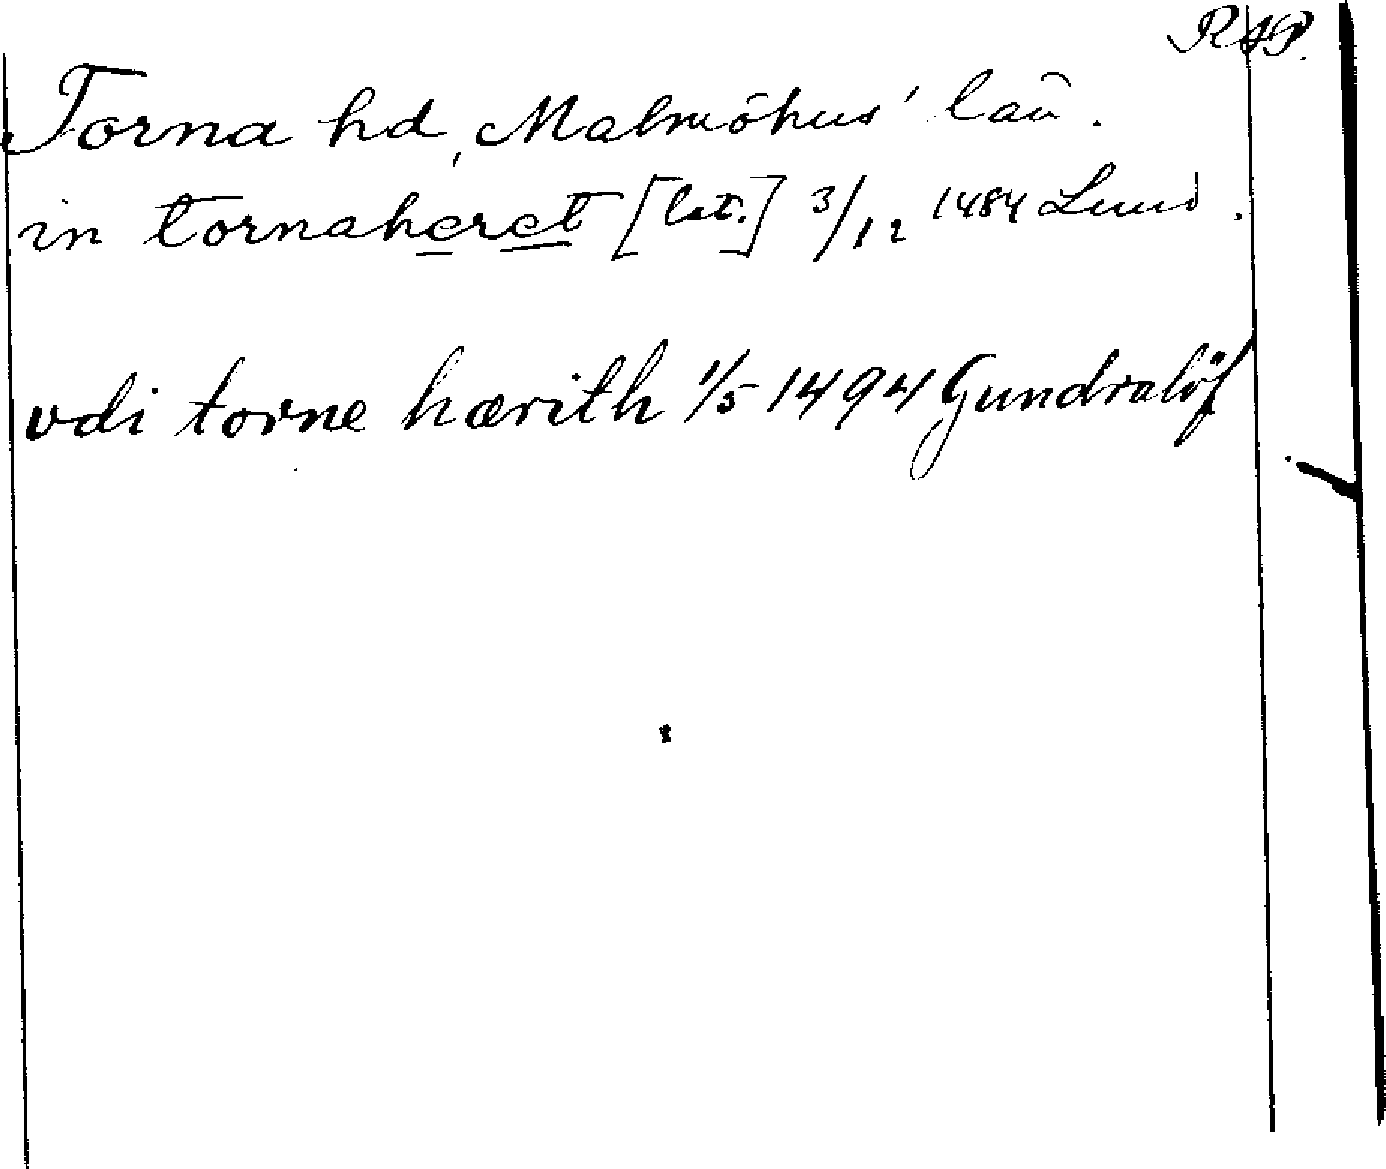 RAP.
Torna hd, Malmöhus' län.
in tornaheret [lat.] 3/12 1484 Lund.
vdi torne hærith 1/5 1494 Gundralöf